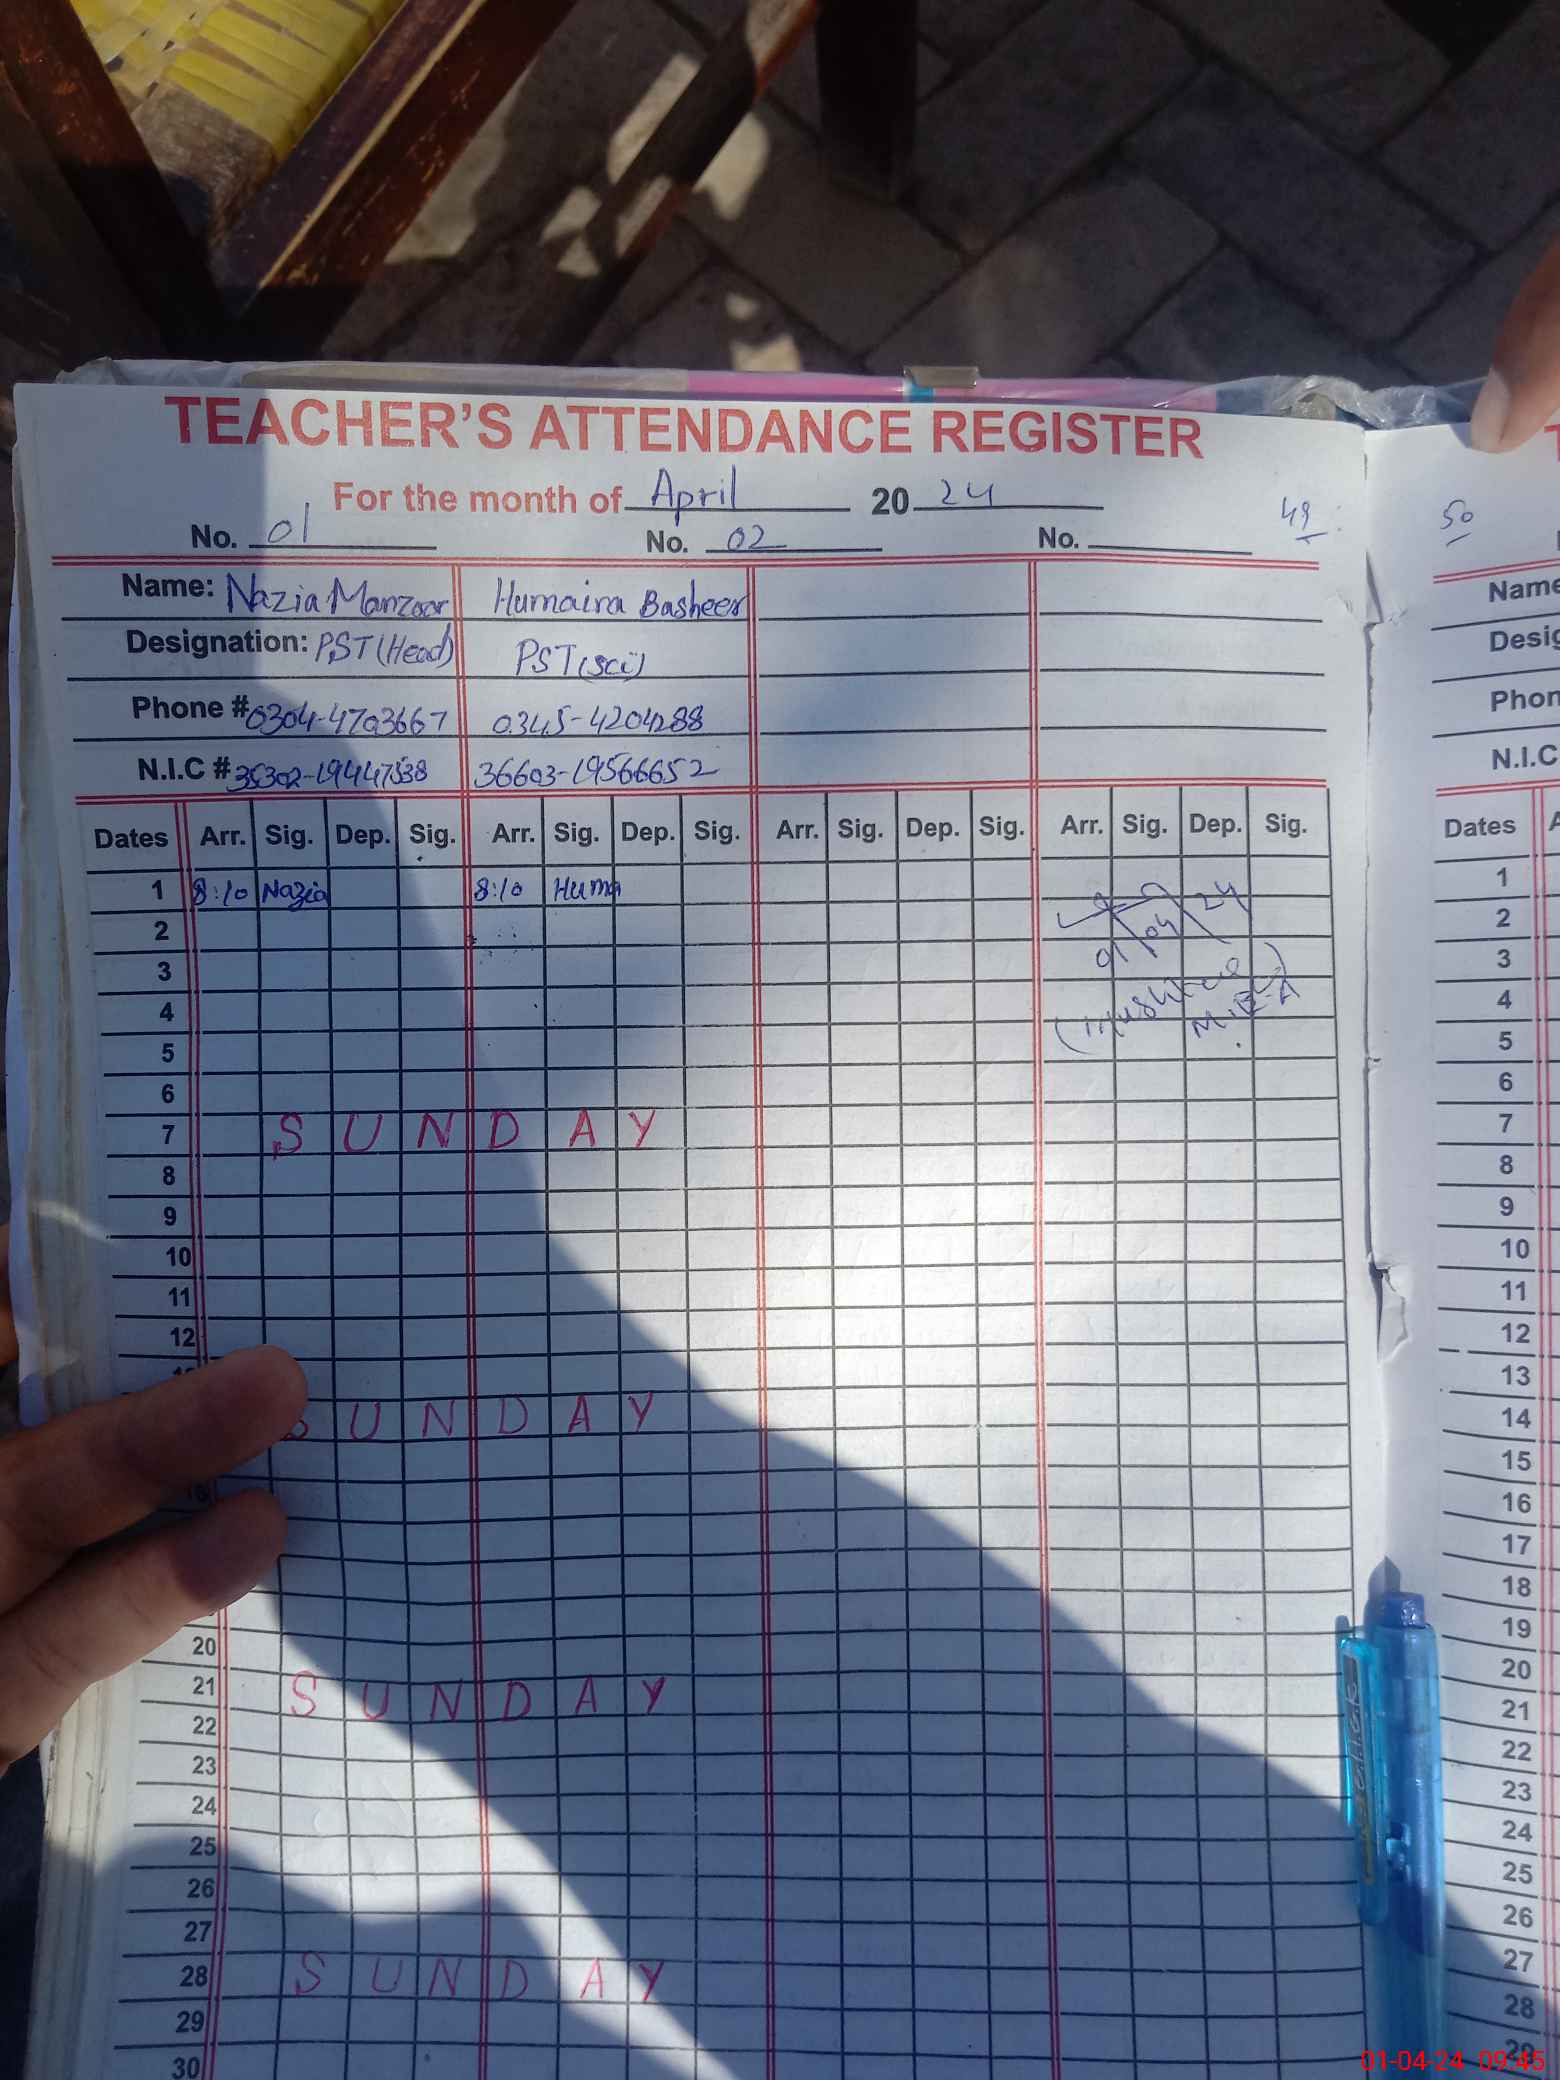 TEACHER'S ATTENDANCE REGISTER
For the month of April 2024
49
No. 01 No. 02 No.
Name: Nazia Manzoor Humaira Basheer
Designation: PST (Head) PST (Sci)
Phone # 0304-4703667 0345-4204288
N.I.C # 35302-19447538 36603-19566652
Dates Arr. Sig. Dep. Sig. Arr. Sig. Dep. Sig. Arr. Sig. Dep. Sig. Arr. Sig. Dep. Sig.
1 8:10 Nazia 8:10 Huma
2
01/04/24
3
4
M.E.A
5
6
7 SUNDAY
8
9
10
11
12
SUNDAY
20
21 SUNDAY
22
23
24
25
26
27
28 SUNDAY
29
30
50
Name
Desig
Phon
N.I.C
Dates
1
2
3
4
5
6
7
8
9
10
11
12
13
14
15
16
17
18
19
20
21
22
23
24
25
26
27
28
29
01-04-24 09:45